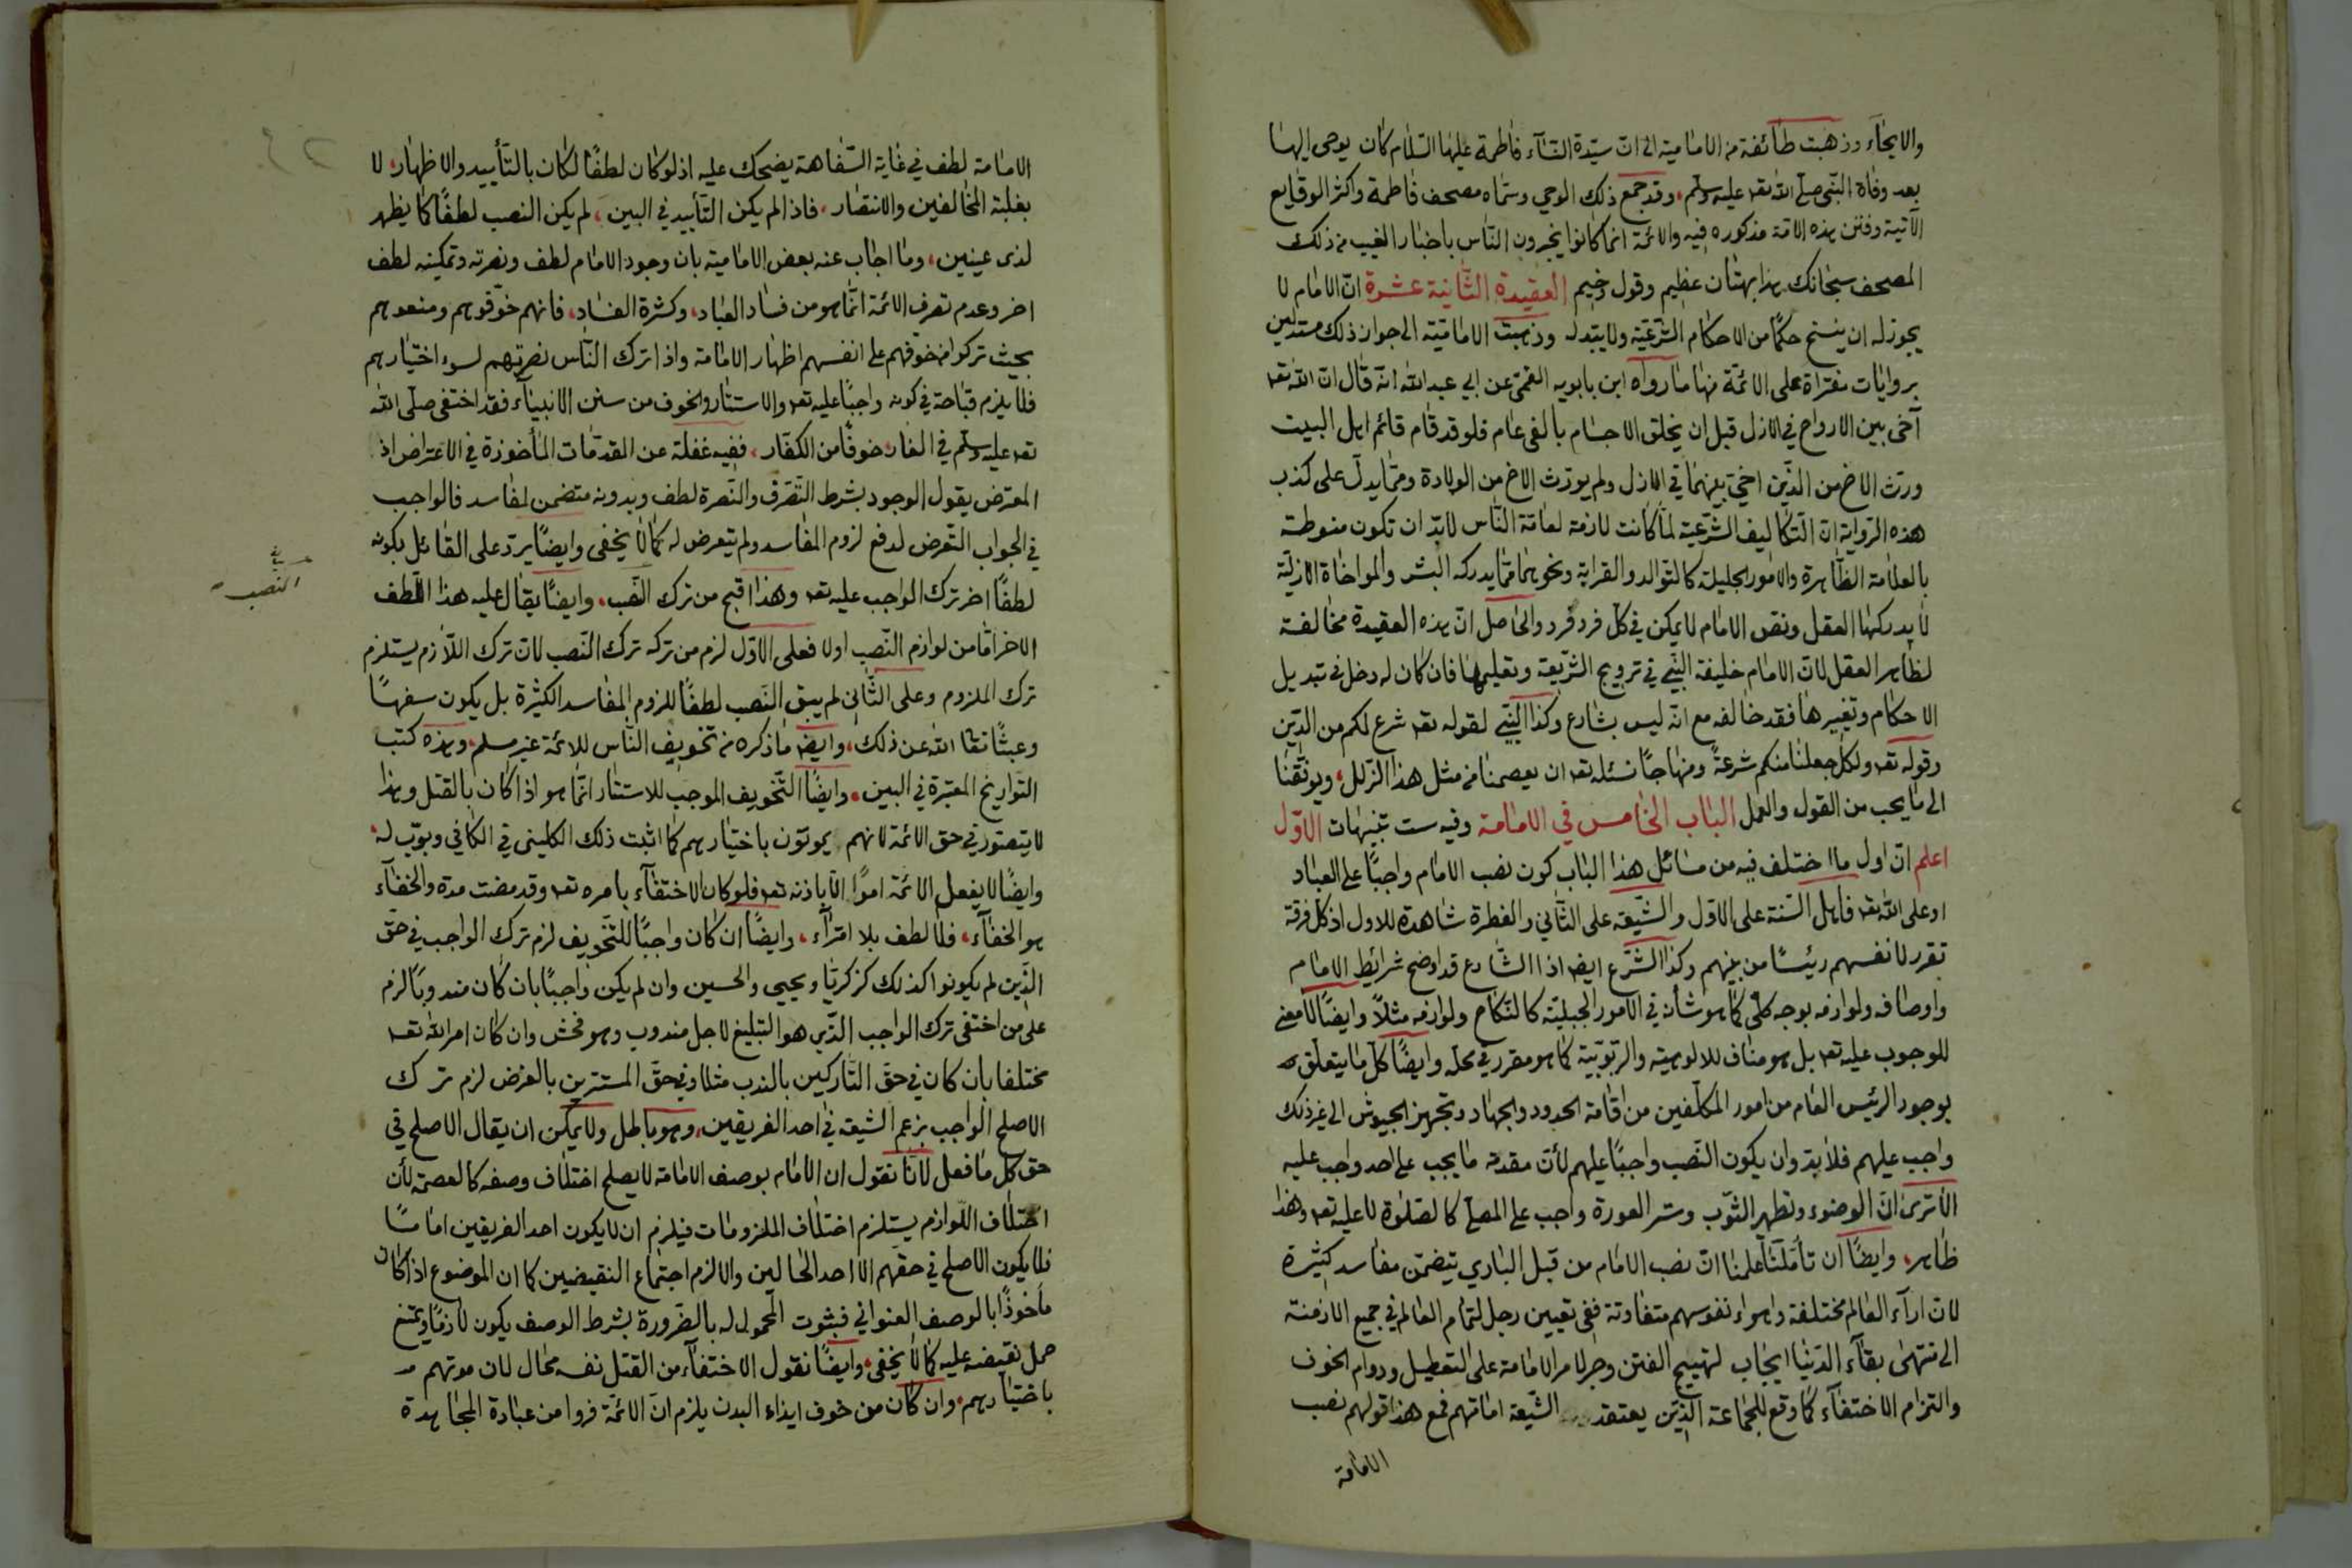 والايحاء وذهبت طائفة من الامامية الى ان سيدة النساء فاطمة عليها السلام كان يوحى اليها
بعد وفاة النبي صلى الله تعه عليه وسلم، وقد جمع ذلك الوحي وسماه مصحف فاطمة واكثر الوقايع
الآتية وفتن هذه الامة مذكوره فيه والائمة انما كانوا يخبرون الناس باخبار الغيب من ذلك
المصحف سبحانك هذا بهتان عظيم وقول وخيم العقيدة الثانية عشرة ان الامام لا
يجوز له ان ينسخ حكمًا من الاحكام الشرعيّة ولا يبدله وذهبت الاماميّة الى جواز ذلك مستدلين
بروايات مفتراة على الائمّة منها ما رواه ابن بابويه القمي عن ابي عبدالله انه قال ان الله تعه
آخى بين الارواح في الازل قبل ان يخلق الاجسام بالفى عام فلو قد قام قائم اهل البيت
ورث الاخ من الذين اخى بينهما في الازل ولم يورث الاخ من الولادة ومما يدل على كذب
هذه الرواية ان التكاليف الشرعية لما كانت لازمة لعامة الناس لابد ان تكون منوطة
بالعلامة الظاهرة والامور الجليلة كالتوالد والقرابة ونحوهما مما يدركه البشر والمواخاة الازلية
لا يدركها العقل ونص الامام لا يمكن في كل فرد فرد والحاصل ان هذه العقيدة مخالفة
لظاهر العقل لان الامام خليفة النبي في ترويج الشريعة وتعليمها فان كان له دخل في تبديل
الاحكام وتغييرها فقد خالفه مع انه ليس بشارع وكذا النبي لقوله تعه شرع لكم من الدين
وقوله تعه ولكل جعلنا منكم شرعةً ومنهاجًا نسئله تعه ان يعصمنا من مثل هذا الزلل، ويوفقنا
الى ما يحب من القول والعمل الباب الخامس في الامامة وفيه ست تنبيهات الاوّل
اعلم ان اول ما اختلف فيه من مسائل هذا الباب كون نصب الامام واجبًا على العباد
او على الله تعه فاهل السنة على الاول والشيعة على الثاني والفطرة شاهدة للاول اذ كل فرقة
تقرر لانفسهم رئيسًا من بينهم وكذا الشرع ايضا اذ الشارع قد اوضح شرائط الامام
واوصافه ولوازمه بوجه كلي كما هو شأنه في الامور الجبلية كالنكاح ولوازمه مثلاً وايضًا لا معنى
للوجوب عليه تعه بل هو مناف للالوهية والربوبية كما هو مقرر في محله وايضًا كل ما يتعلق
بوجود الرئيس العام من امور المكلفين من اقامة الحدود والجهاد وتجهيز الجيوش الى غير ذلك
واجب عليهم فلابد وان يكون النصب واجبًا عليهم لأن مقدمة ما يجب على احد واجب عليه
الا ترى ان الوضوء وتطهير الثوب وستر العورة واجب على المصلى كالصلوة لا عليه تعه وهذا
ظاهر، وايضًا ان تأملنا علمنا ان نصب الامام من قبل الباري يتضمن مفاسد كثيرة
لان اراء العالم مختلفة واهواء نفوسهم متفاوتة ففى تعيين رجل لتمام العالم في جميع الازمنة
الى منتهى بقآء الدنيا ايجاب لتهييج الفتن وجر لامر الامامة على التعطيل ودوام الخوف
والتزام الاختفآء كما وقع للجماعة الذين يعتقد الشيعة امامتهم فمع هذا قولهم نصب
الامامة
الامامة لطف في غاية السفاهة يضحك عليه اذ لو كان لطفًا لكان بالتأييد والاظهار، لا
بغلبة المخالفين والانتصار، فاذا لم يكن التأييد في البين، لم يكن النصب لطفًا كما يظهر
لذى عينين، وما اجاب عنه بعض الامامية بان وجود الامام لطف ونصرته وتمكينه لطف
اخر وعدم تصرف الائمة انما هو من فساد العباد، وكثرة الفساد، فانهم خوفوهم ومنعوهم
بحيث تركوا من خوفهم على انفسهم اظهار الامامة واذا ترك الناس نصرتهم لسوء اختيارهم
فلا يلزم قباحة في كونه واجبًا عليه تعه والاستتار والخوف من سنن الانبيآء فقد اختفى صلى الله
تعه عليه وسلم في الغار خوفًا من الكفار، ففيه غفلة عن المقدمات المأخوذة في الاعتراض اذ
المعترض يقول الوجود بشرط التصرف والنصرة لطف وبدونه متضمن لمفاسد فالواجب
في الجواب التعرض لدفع لزوم المفاسد ولم يتعرض له كما لا يخفى وايضًا يرد على القائل بكونه
لطفًا اخر ترك الواجب عليه تعه وهذا اقبح من ترك النصب، وايضًا يقال عليه هذا اللطف
الاخر اما من لوازم النصب اولا فعلى الاوّل لزم من تركه ترك النصب لان ترك اللازم يستلزم
ترك الملزوم وعلى الثاني لم يبق النصب لطفًا للزوم المفاسد الكثيرة بل يكون سفهًا
وعبثًا تعا الله عن ذلك، وايضا ما ذكره من تخويف الناس للائمة غير مسلم، وهذه كتب
التواريخ المعتبرة في البين، وايضًا التخويف الموجب للاستتار انما هو اذا كان بالقتل وهذا
لا يتصور في حق الائمة لانهم يموتون باختيارهم كما اثبت ذلك الكليني في الكافي وبوّب له
وايضًا لا يفعل الائمة امرًا الا باذنه تعه فلو كان الاختفآء بامره تعه وقد مضت مدة والخفآء
هو الخفآء، فلا لطف بلا امترآء، وايضًا ان كان واجبًا للتخويف لزم ترك الواجب في حق
الذين لم يكونوا كذلك كزكريا ويحيى والحسين وان لم يكن واجبًا بان كان مندوبًا لزم
على من اختفى ترك الواجب الذي هو التبليغ لاجل مندوب وهو فحش وان كان امر الله تعه
مختلفا بان كان في حق التاركين بالندب مثلا وفي حق المستترين بالفرض لزم ترك
الاصلح الواجب بزعم الشيعة في احد الفريقين، وهو باطل ولا يمكن ان يقال الاصلح في
حق كل ما فعل لانا نقول ان الامام بوصف الامامة لا يصلح اختلاف وصفه كالعصمة لأن
اختلاف اللوازم يستلزم اختلاف الملزومات فيلزم ان لا يكون احد الفريقين امامًا
فلا يكون الاصلح في حقهم الا احد الحالين والا لزم اجتماع النقيضين كما ان الموضوع اذا كان
مأخوذًا بالوصف العنواني فثبوت المحمول له بالضرورة بشرط الوصف يكون لازمًا ويمتنع
حمل نقيضه عليه كما لا يخفى، وايضًا نقول الاختفآء من القتل نفسه محال لان موتهم
باختيارهم، وان كان من خوف ايذاء البدن يلزم ان الائمة فروا من عبادة المجاهدة
النصب